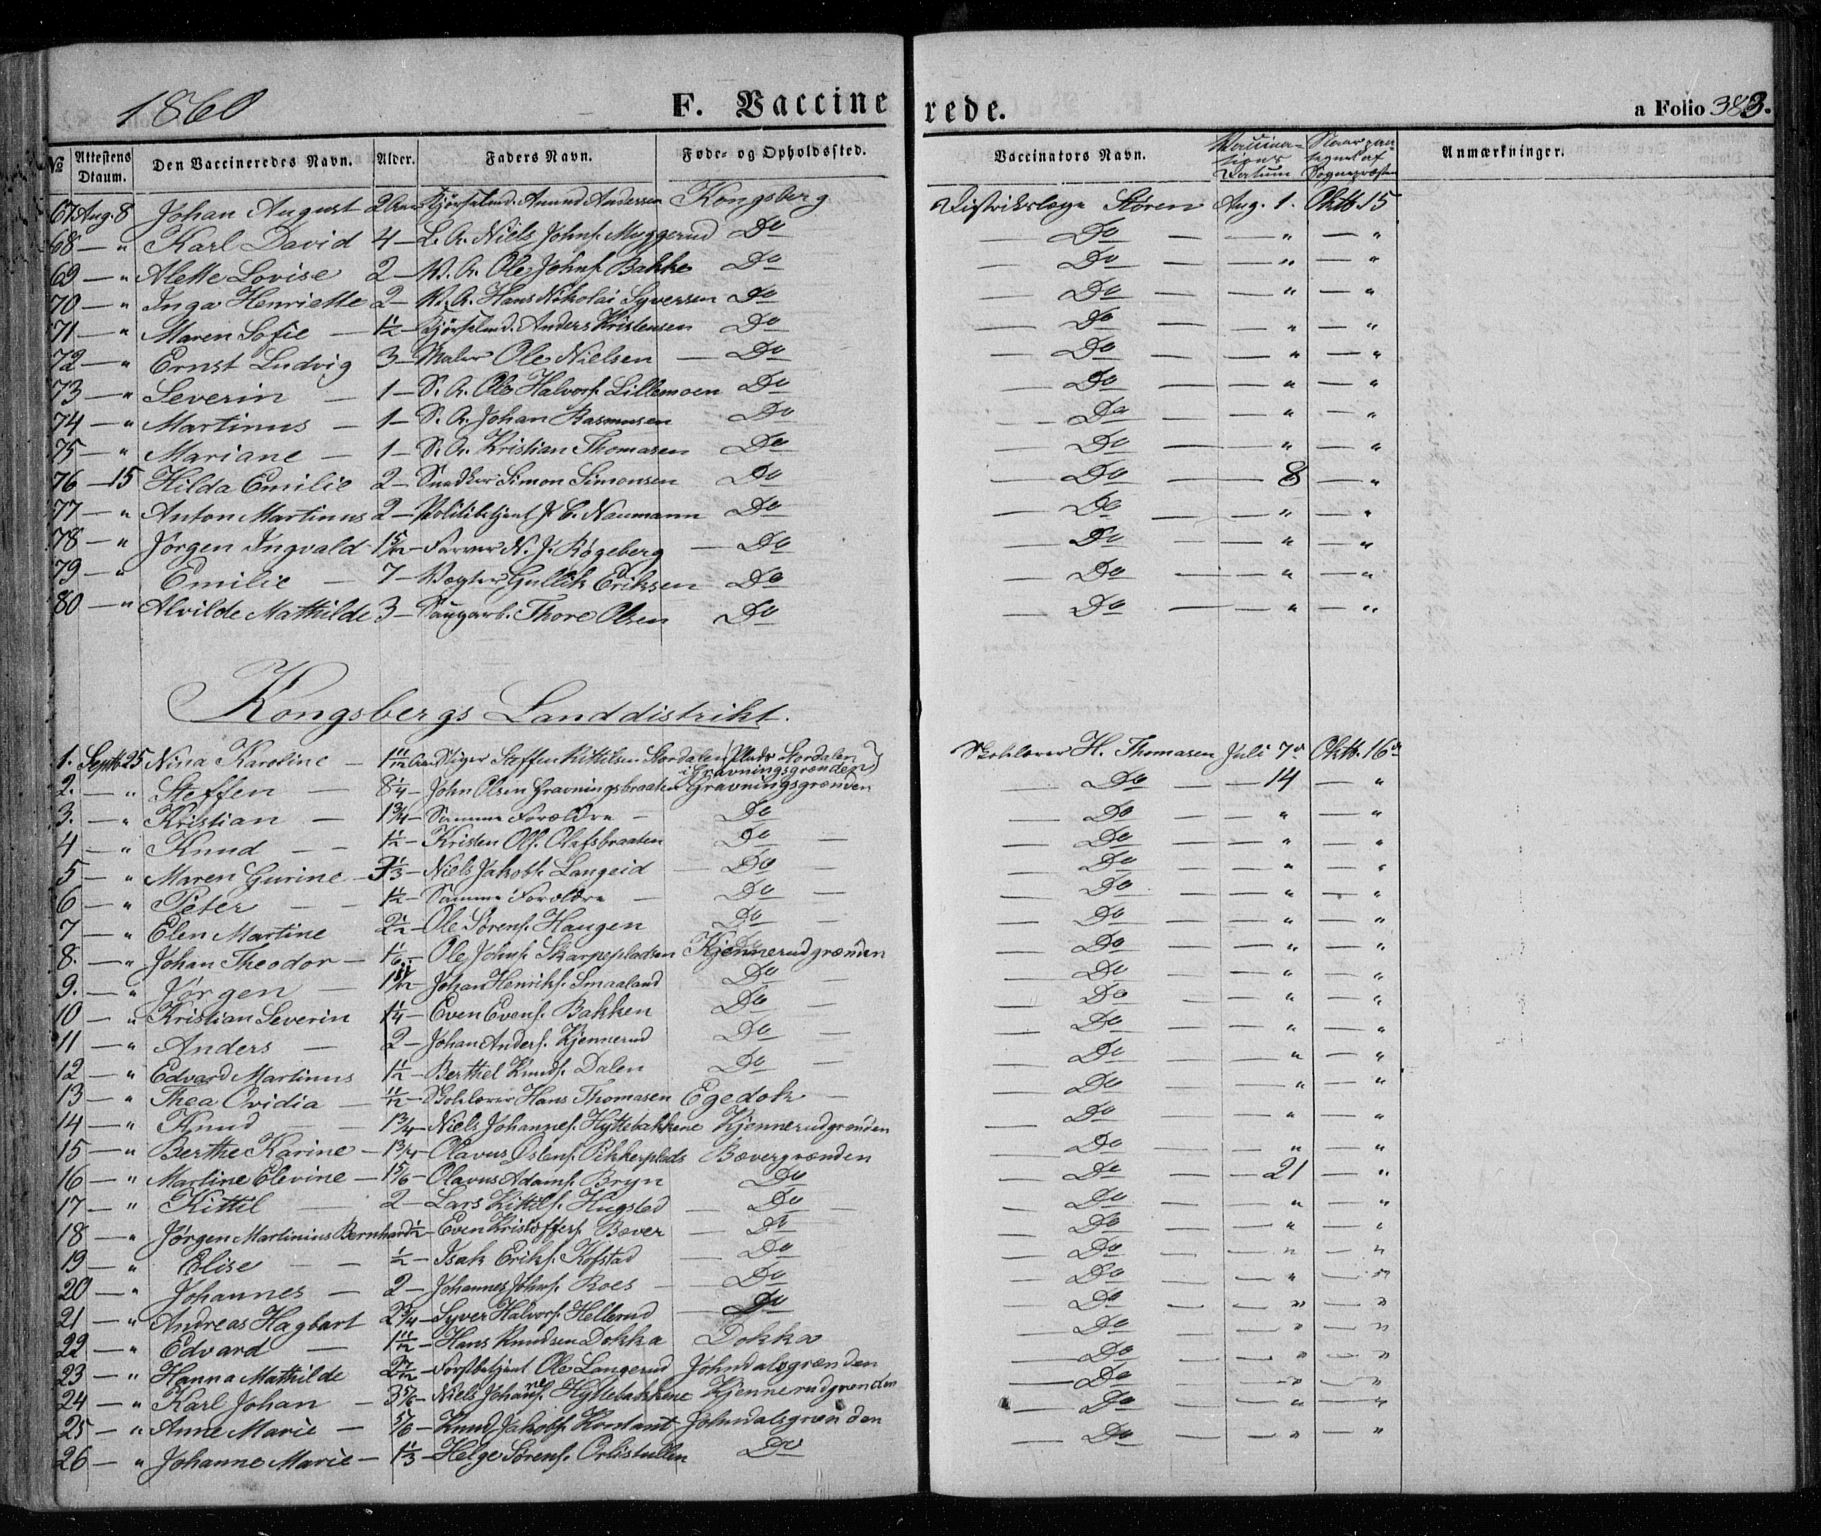 1860 F. Vaccinerede. a Folio 383.
№ Attestens Dtaum. Den Vaccineredes Navn. Alder. Faders Navn. Føde- og Opholdssted. Vaccinators Navn. Vaccinations Datum Naar antegnet af Sognepræsten Anmærkninger.
67 Aug. 8 Johan August 2 Aar Kjørselmd. Amund Andersen Kongsberg Distriktslæge Støren Aug. 1. Oktb. 15
68 — " Karl David 4 — B. A. Niels Johns. Myggerud Do — Do — — " — "
69 — " Alette Lovise 2 — V. A. Ole Johns. Bakke Do — Do — — " — "
70 — " Inga Henriette 2 — V. A. Hans Nikolai Syversen Do — Do — — " — "
71 — " Maren Sofie — 1½ — Kjørselmd. Anders Kristensen Do — Do — — " — "
72 — " Ernst Ludvig 3 — Maler Ole Nielsen — Do — Do — — " — "
73 — " Severin — 1 — S. A. Ole Halvors. Lillemoen Do — Do — — " — "
74 — " Martinus — 1 — S. A. Johan Rasmusen Do — Do — — " — "
75 — " Mariane — 1 — S. A. Kristian Thomasen Do — Do — — " — "
76 — 15 Hilda Emilie 2 — Snedker Simon Simonsen Do — Do — — 8 — "
77 — " Anton Martinus 2 — Politibetjent J. C. Naumann Do — Do — — " — "
78 — " Jørgen Ingvald 1 5/12 — Farver N. J. Røgeberg — Do — Do — — " — "
79 — " Emilie — 7 — Vægter Gullik Eriksen Do — Do — — " — "
80 — " Alvilde Mathilde 3 — Saugarb. Thore Olsen Do — Do — — " — "
Kongsbergs Landdistrikt.
1. Septb. 25 Nina Karoline — 1 11/12 Aar Stiger Steffen Kittilsen Stordalen (Plads Stordalen i Gravningsgrænden) Skolelærer H. Thomasen Juli 7de Oktb. 16de
2. — " Steffen — 8¼ — John Olsen Gravningsbraaten Gravningsgrænden — Do — — 14 — "
3. — " Kristian — 1¾ — Samme Forældre — Do — Do — — " — "
4 — " Knud — — 1½ — Kristen Ols. Olafsbraaten Do — — Do — — " — "
5 — " Maren Gurine — 3⅓ — Niels Jakobs. Langeid — Do — — Do — — " — "
6 — " Peter — — 1½ — Samme Forældre — Do — — Do — — " — "
7 — " Elen Martine 2½ — Ole Sørens. Haugen Do — — Do — — " — "
8. — " Johan Theodor — 1/6 — Ole Johns. Skarpepladsen Kjennerudgrænden — Do — — " — "
9. — " Jørgen — Johan Henriks. Smaaland Do — — Do — — " — "
10 — " Kristian Severin 1¼ — Even Evens. Bakken Do — — Do — — " — "
11 — " Anders — 2 — Johan Anders. Kjennerud Do — — Do — — " — "
12 — " Edvard Martinus 1½ — Berthel Knuds. Dalen Do — — Do — — " — "
13 — " Thea Ovidia — 11/12 — Skolelærer Hans Thomasen Egedok — — Do — — " — "
14 — " Knud — — 1¾ — Niels Johannes. Hyttebakkene Kjennerudgrænden — Do — — " — "
15 — " Berthe Karine — 1¾ — Olavus Østens. Pikkerplads Bævergrænden — Do — — " — "
16 — " Martine Elevine — 1 5/6 — Olavus Adams. Bryn Do — Do — — 21 — "
17 — " Kittil — 2 — Lars Kittils. Hugsted — Do — — Do — — " — "
18 — " Jørgen Martinius Bernhard ½ — Even Kristoffers. Bæver — Do — Do — — " — "
19 — " Elise — — ½ — Isak Eriks. Kofstad — Do — Do — — " — "
20 — " Johannes — 2 — Johannes Johns. Roes — — Do — Do — — " — "
21 — " Andreas Hagbart 2¾ — Syver Halvors. Hellerud — Do — Do — — " — "
22 — " Edvard — 1 11/12 — Hans Knudsen Dokka Dokka — Do — — " — "
23 — " Hanna Mathilde Forstbetjent Ole Langerud Johndalsgrænden — Do — — " — "
24 — " Karl Johan — 3 5/6 — Niels Johannes. Hyttebakkene Kjennerudgrænden — Do — — " — "
25 — " Anne Marie — 5/6 — Knud Jakobs. Johndalsgrænden — Do — — " — "
26 — " Johanne Marie — 1⅓ — Helge Sørens. Do — Do — — " — "